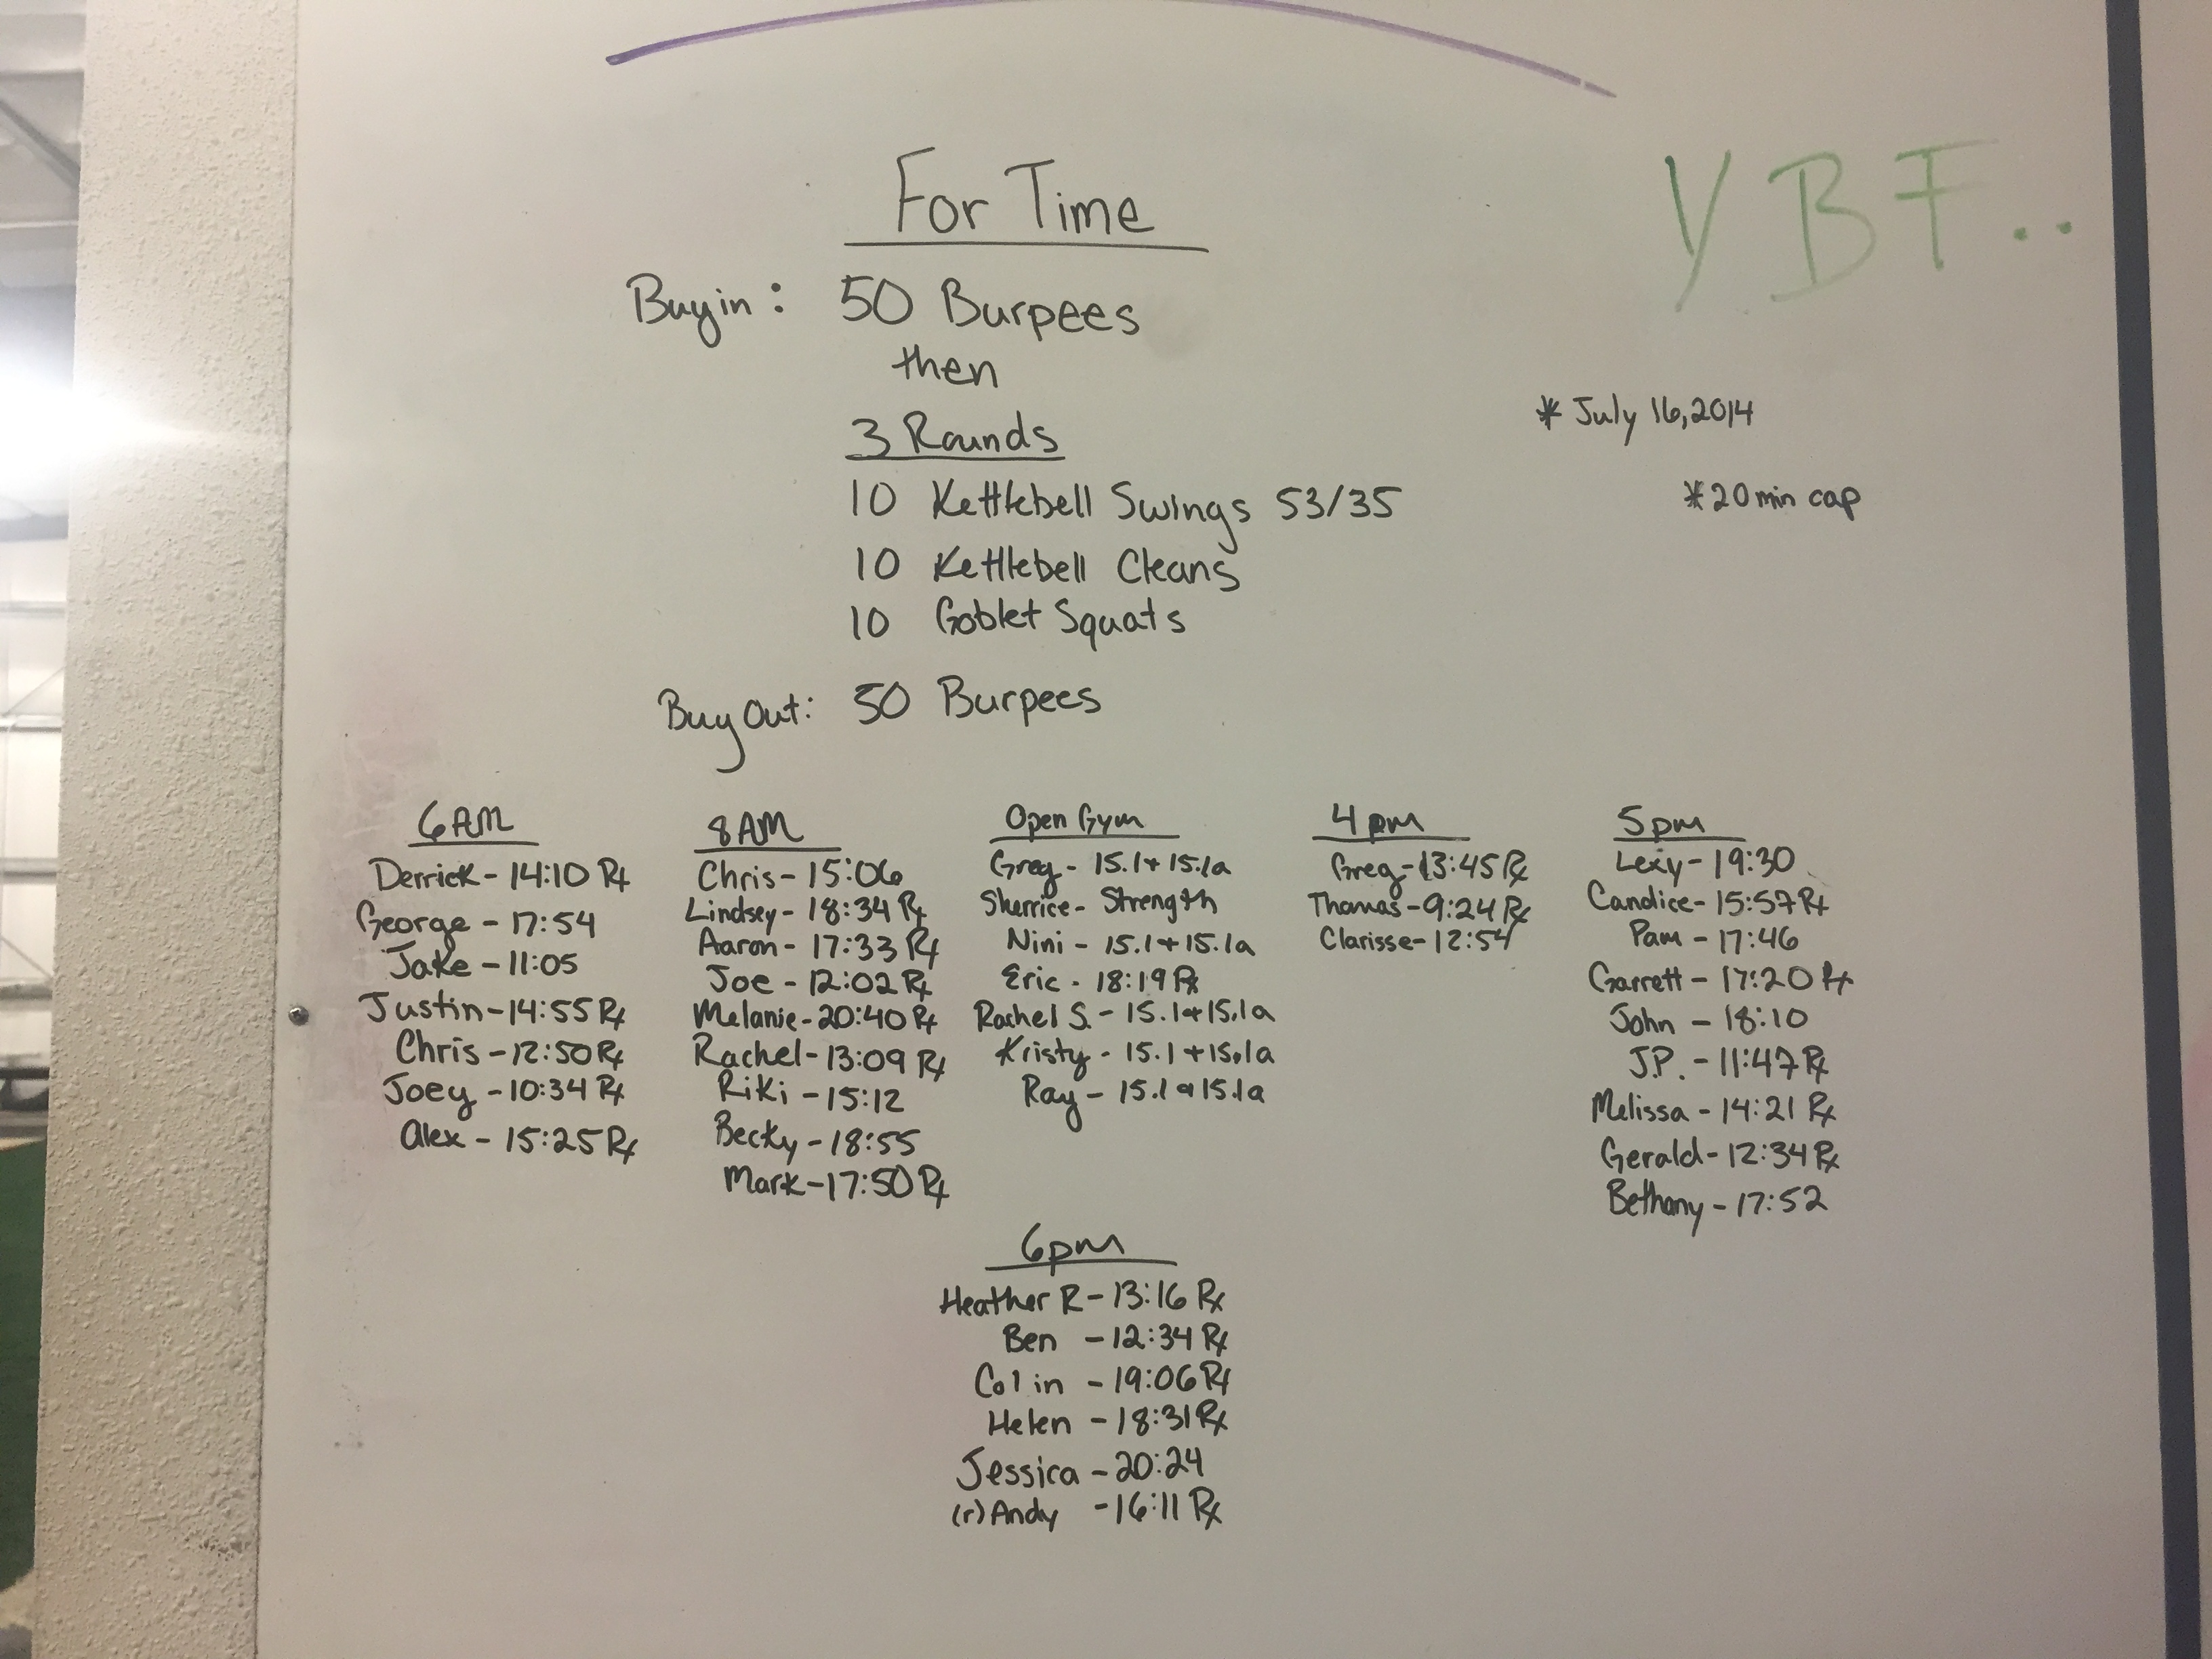 For Time
VBF..
Buy in: 50 Burpees
then
3 Rounds
* July 16, 2014
10 Kettlebell Swings 53/35
* 20 min cap
10 Kettlebell Cleans
10 Goblet Squats
Buy Out: 50 Burpees
6AM
Derrick - 14:10 Rx
George - 17:54
Jake - 11:05
Justin - 14:55 Rx
Chris - 12:50 Rx
Joey - 10:34 Rx
Alex - 15:25 Rx
8AM
Chris - 15:06
Lindsey - 18:34 Rx
Aaron - 17:33 Rx
Joe - 12:02 Rx
Melanie - 20:40 Rx
Rachel - 13:09 Rx
Riki - 15:12
Becky - 18:55
Mark - 17:50 Rx
Open Gym
Greg - 15.1 + 15.1a
Sherrice - Strength
Nini - 15.1 + 15.1a
Eric - 18:19 Rx
Rachel S. - 15.1 + 15.1a
Kristy - 15.1 + 15.1a
Ray - 15.1 + 15.1a
4pm
Greg - 13:45 Rx
Thomas - 9:24 Rx
Clarisse - 12:54
5pm
Lexy - 19:30
Candice - 15:57 Rx
Pam - 17:46
Garrett - 17:20 Rx
John - 18:10
J.P. - 11:47 Rx
Melissa - 14:21 Rx
Gerald - 12:34 Rx
Bethany - 17:52
6pm
Heather R - 13:16 Rx
Ben - 12:34 Rx
Colin - 19:06 Rx
Helen - 18:31 Rx
Jessica - 20:24
(r) Andy - 16:11 Rx